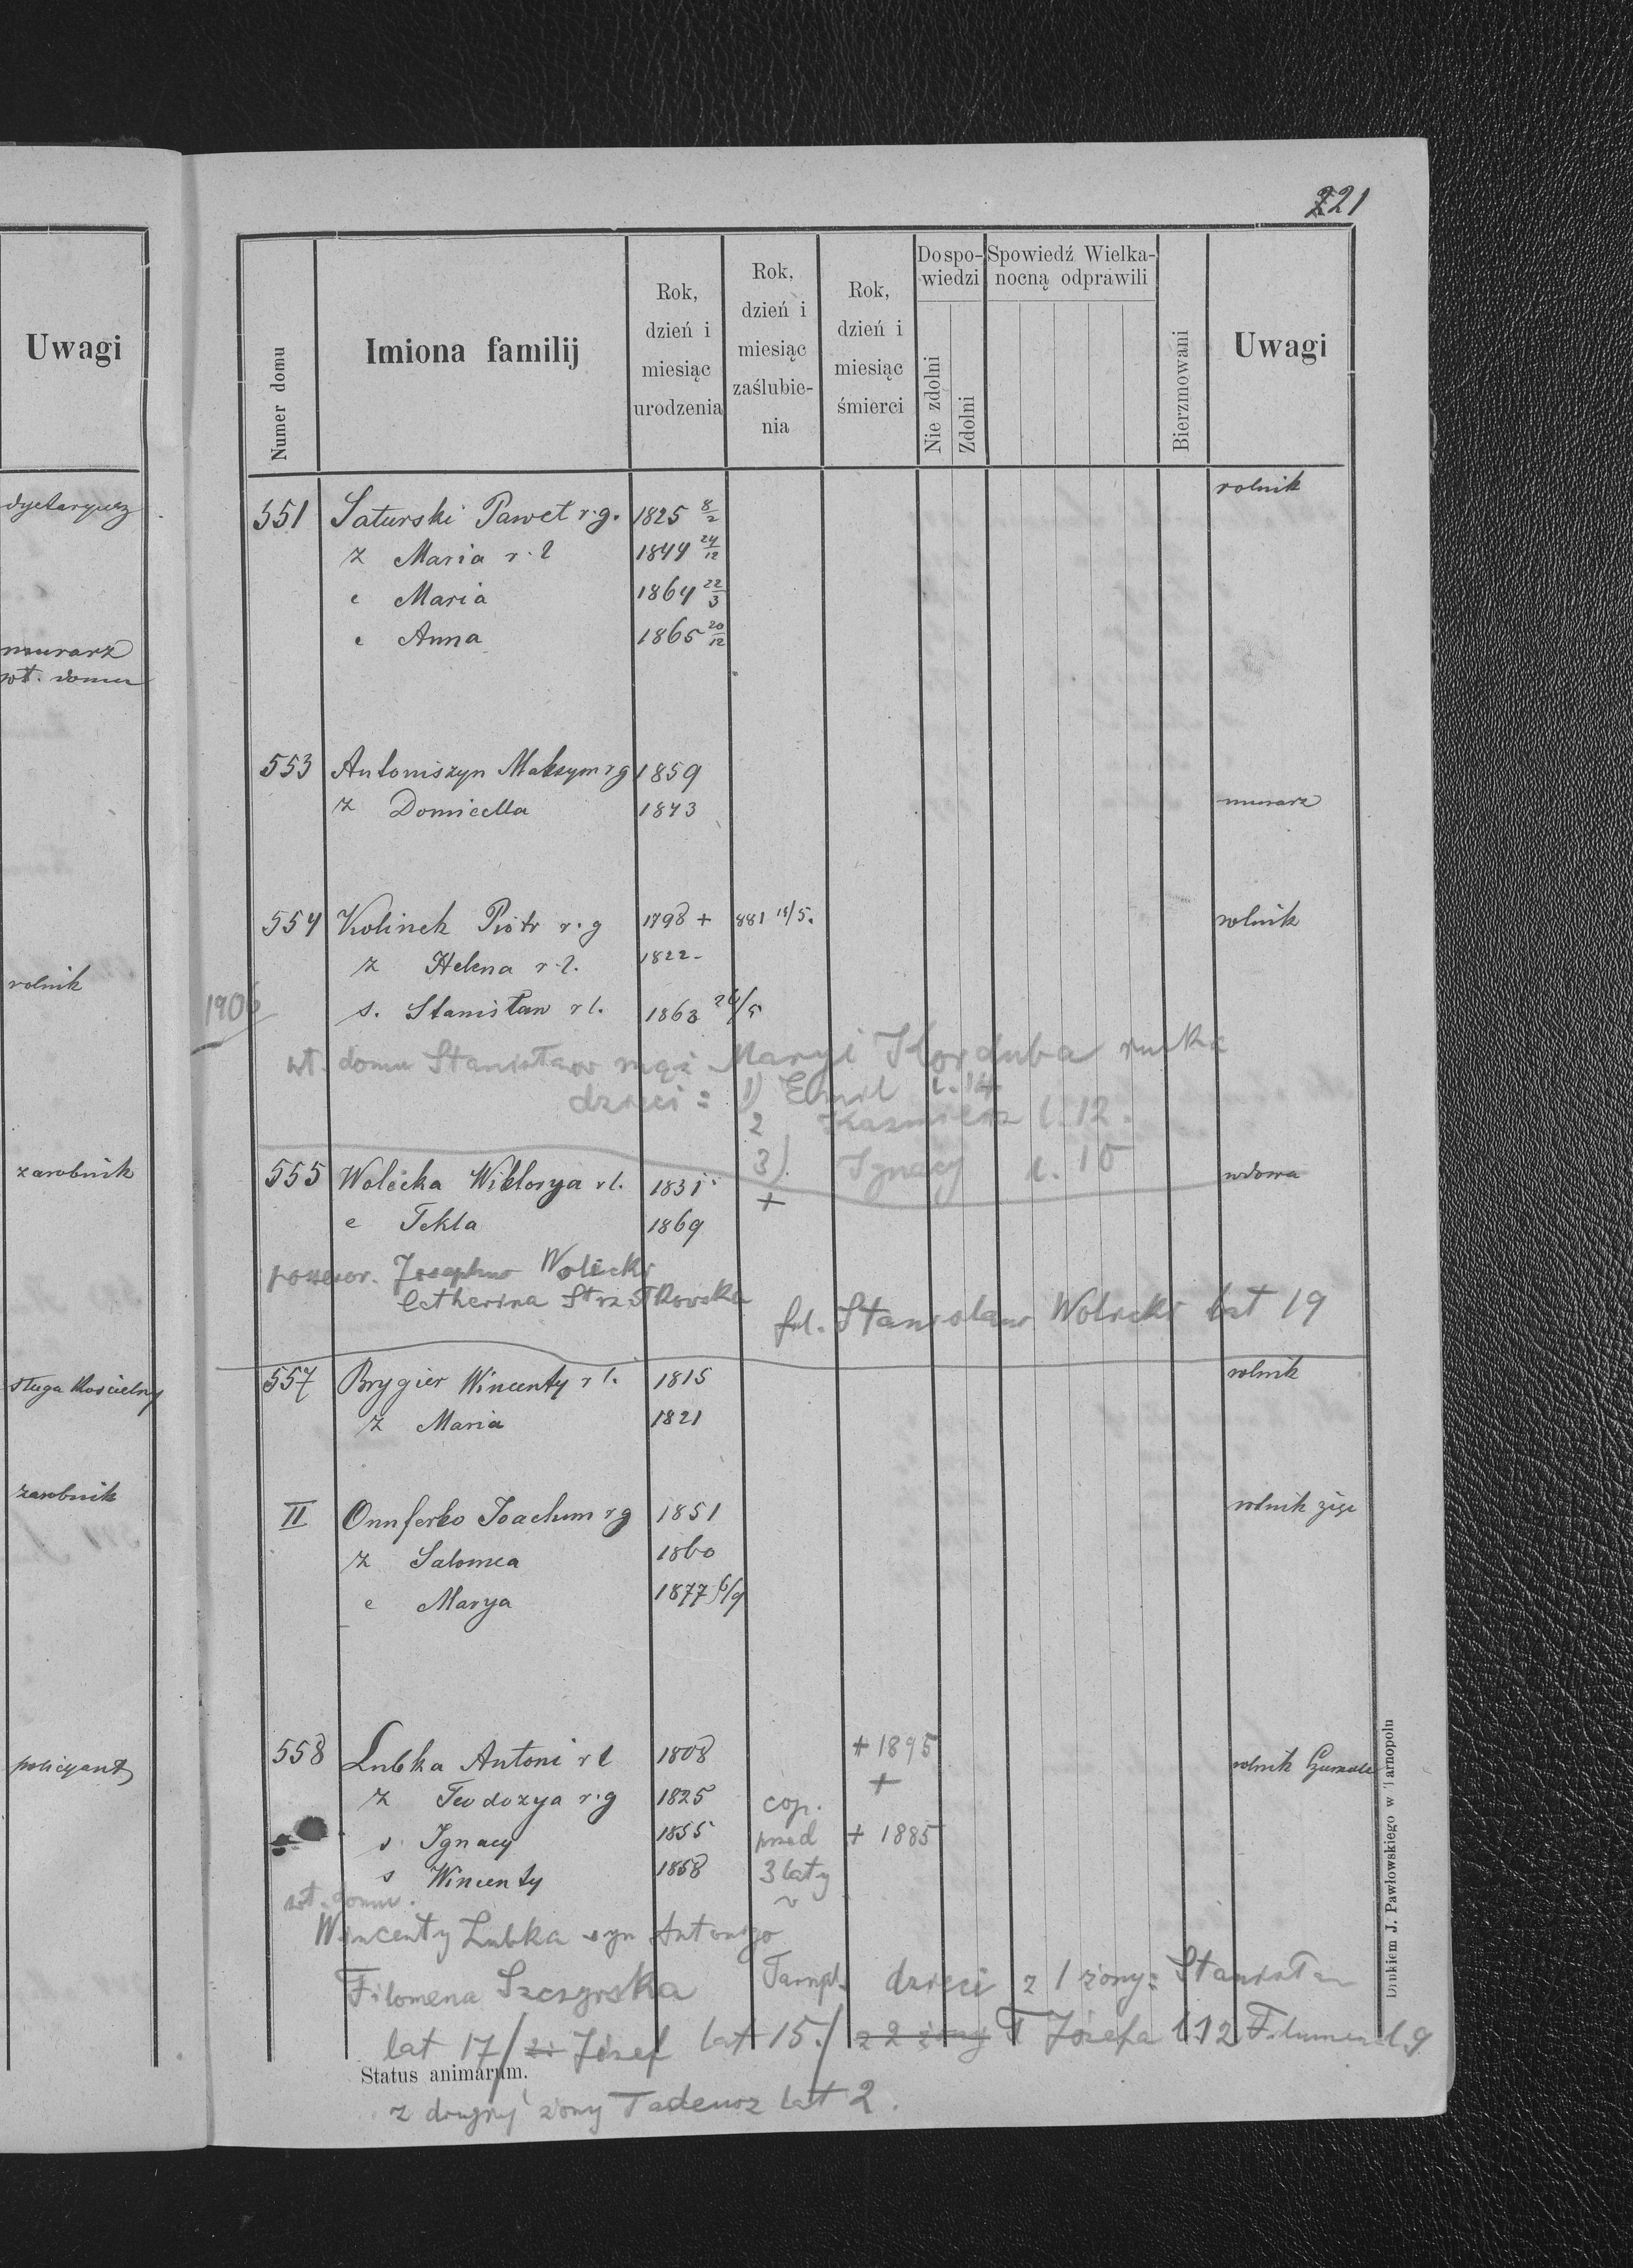 221
Uwagi
dyetaryusz
murarz
wł. domu
rolnik
zarobnik
sługa kościelny
zarobnik
policyant
Numer domu
Imiona familij
Rok, dzień i miesiąc urodzenia
Rok, dzień i miesiąc zaślubienia
Rok, dzień i miesiąc śmierci
Do spowiedzi
Nie zdolni
Zdolni
Spowiedź Wielkanocną odprawili
Bierzmowani
Uwagi
551 Saturski Paweł r.g. 1825 8/2 rolnik
ż Maria r.l 1844 24/12
c Maria 1864 22/3
c Anna 1865 20/12
553 Antoniszyn Maksym rg 1859
ż Domicella 1843 murarz
554 Kolinek Piotr r.g 1798 + 881 /5. rolnik
ż Helena r.l. 1822
1906 s. Stanisław r l. 1863 26/5
wł. domu Stanisław mąż Maryi Korduba ruska
dzieci: 1) Emil l. 14
2 Kazmierz l. 12.
3). Ignacy l. 10
555 Wolicka Wiktorya r l. 1831 + wdowa
c Tekla 1869
possesor. Josephus Wolicki
Catherina
fil. Stanislaus Wolicki lat 19
557 Brygier Wincenty r l. 1815 rolnik
ż Maria 1821
II Onnferko Joachim rg 1851 rolnik
ż Salomea 1860
c Marya 1877 6/9
558 Lubka Antoni r l 1808 + 1895 rolnik
ż Teodozya r.g 1825 cop. +
s Ignacy 1855 przed + 1885
s Wincenty 1858 3 laty
wł. domu.
Wincenty Lubka syn Antoniego
Filomena Szczyrska Tarnpl. dzieci z 1 żony: Stanisław
lat 17/ Józef lat 15./ z 2 żony Józefa l. 12 Filumena l. 9
Status animarum.
z drugiej żony Tadeusz lat 2.
Drukiem J. Pawłowskiego w Tarnopolu